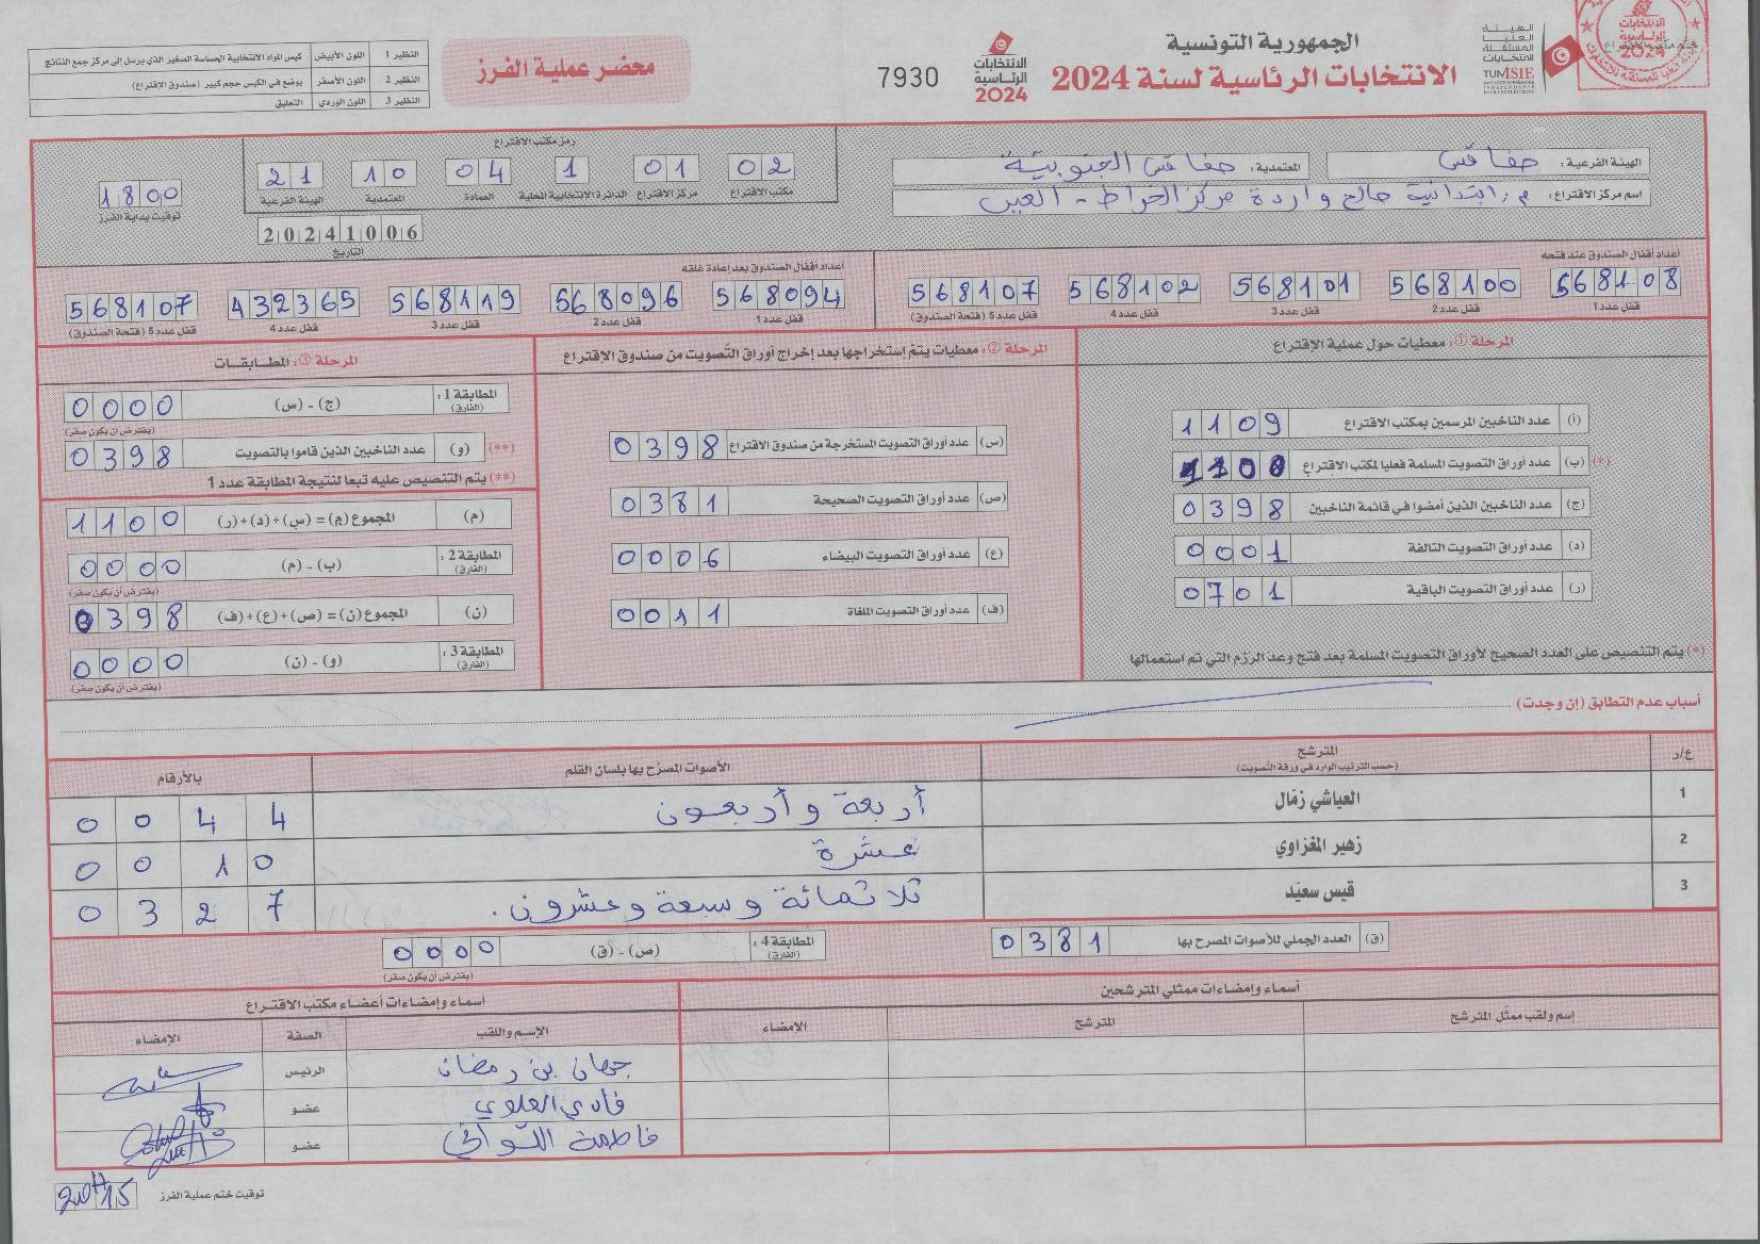 الجمهورية التونسية
الانتخابات الرئاسية لسنة 2024
الهيئة العليا المستقلة للانتخابات
TUNISIE
الانتخابات الرئاسية 2024
7930
محضر عملية الفرز
النظير 1 اللون الأبيض كيس المواد الانتخابية الحساسة الصغير الذي يرسل إلى مركز جمع النتائج
النظير 2 اللون الأصفر يوضع في الكيس حجم كبير (صندوق الاقتراع)
النظير 3 اللون الوردي التعليق
الهيئة الفرعية: صفاقس
المعتمدية: صفاقس الجنوبية
اسم مركز الاقتراع: م. ابتدائية صالح واردة مركز الخراط - العين
رمز مكتب الاقتراع
02 01 1 04 10 21
مكتب الاقتراع مركز الاقتراع الدائرة الانتخابية المحلية العمادة المعتمدية الهيئة الفرعية
20241006
التاريخ
1800
توقيت بداية الفرز
أعداد أقفال الصندوق عند فتحه
568108 568100 568101 568102 568107
قفل عدد 1 قفل عدد 2 قفل عدد 3 قفل عدد 4 قفل عدد 5 (فتحة الصندوق)
أعداد أقفال الصندوق بعد إعادة غلقه
568094 568096 568119 432365 568107
قفل عدد 1 قفل عدد 2 قفل عدد 3 قفل عدد 4 قفل عدد 5 (فتحة الصندوق)
المرحلة ①: معطيات حول عملية الإقتراع
(أ) عدد الناخبين المرسمين بمكتب الاقتراع 1109
(*) (ب) عدد أوراق التصويت المسلمة فعليا لمكتب الاقتراع 1100
(ج) عدد الناخبين الذين أمضوا في قائمة الناخبين 0398
(د) عدد أوراق التصويت التالفة 0001
(ر) عدد أوراق التصويت الباقية 0701
(*) يتم التنصيص على العدد الصحيح لأوراق التصويت المسلمة بعد فتح وعد الرزم التي تم استعمالها
المرحلة ②: معطيات يتم إستخراجها بعد إخراج أوراق التّصويت من صندوق الإقتراع
(س) عدد أوراق التصويت المستخرجة من صندوق الاقتراع 0398
(ص) عدد أوراق التصويت الصحيحة 0381
(ع) عدد أوراق التصويت البيضاء 0006
(ف) عدد أوراق التصويت الملغاة 0011
المرحلة ③: المطابقات
المطابقة 1: (الفارق) (ج) - (س) 0000
(يفترض أن يكون صفر)
(**) (و) عدد الناخبين الذين قاموا بالتصويت 0398
(**) يتم التنصيص عليه تبعا لنتيجة المطابقة عدد 1
(م) المجموع (م) = (س) + (د) + (ر) 1100
المطابقة 2: (الفارق) (ب) - (م) 0000
(يفترض أن يكون صفر)
(ن) المجموع (ن) = (ص) + (ع) + (ف) 0398
المطابقة 3: (الفارق) (و) - (ن) 0000
(يفترض أن يكون صفر)
أسباب عدم التطابق (إن وجدت)
ع/ر المترشح (حسب الترتيب الوارد في ورقة التّصويت) الأصوات المصرّح بها بلسان القلم بالأرقام
1 العياشي زمّال أربعة وأربعون 0044
2 زهير المغزاوي عشرة 0010
3 قيس سعيّد ثلاثمائة وسبعة وعشرون. 0327
(ق) العدد الجملي للأصوات المصرح بها 0381
المطابقة 4: (الفارق) (ص) - (ق) 0000
(يفترض أن يكون صفر)
أسماء وإمضاءات ممثلي المترشحين
إسم ولقب ممثّل المترشح المترشح الامضاء
أسماء وإمضاءات أعضاء مكتب الاقتراع
الإسم واللقب الصفة الإمضاء
جهان بن رمضان الرئيس
فادي العلوي عضو
فاطمة اللواتي عضو
توقيت ختم عملية الفرز 20H15